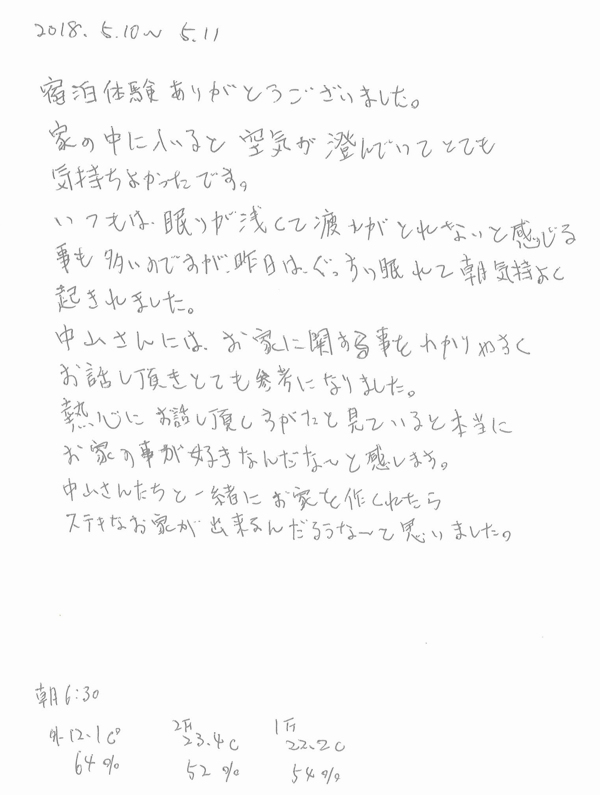 2018. 5.10～ 5.11
宿泊体験ありがとうございました。
家の中に入いると 空気が 澄んでいて とても
気持ちよかったです。
いつもは、眠りが浅くて疲れがとれないと感じる
事も 多いのですが、昨日は、ぐっすり眠れて朝気持よく
起きれました。
中山さんには、お家に関する事をわかりやすく
お話し頂きとても参考になりました。
熱心に お話し頂くすがたを見ていると本当に
お家の事が好きなんだな～と感じます。
中山さんたちと一緒に お家を作くれたら
ステキなお家が 出来るんだろうな～て思いました。
朝6:30
外12.1C° 2F 23.4C 1F 22.2C
64% 52% 54%